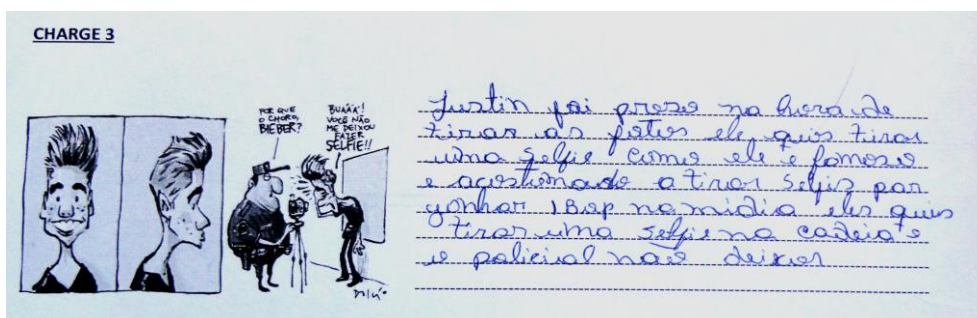 CHARGE 3
POR QUE
O CHORO,
BIEBER?
BUÁÁÁ!
VOCÊ NÃO
ME DEIXOU
FAZER
SELFIE!!
Justin foi preso na hora de
tirar as fotos ele quis tirar
uma selfie como ele é famoso
e acostumado a tirar selfis par
gonhar na mídia ele quis
tirar uma selfie na cadeia e
o policial não deixou